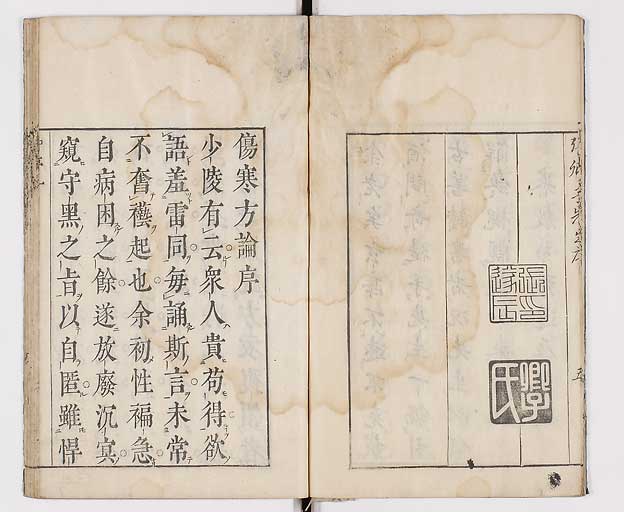 張印遂辰
卿子氏
傷寒方論序
少陵有云衆人貴苟得欲
語羞雷同每誦斯言未常
不奮襼起也余初性褊急
自病困之餘遂放廢沉冥
窺守黑之旨以自匿雖悍